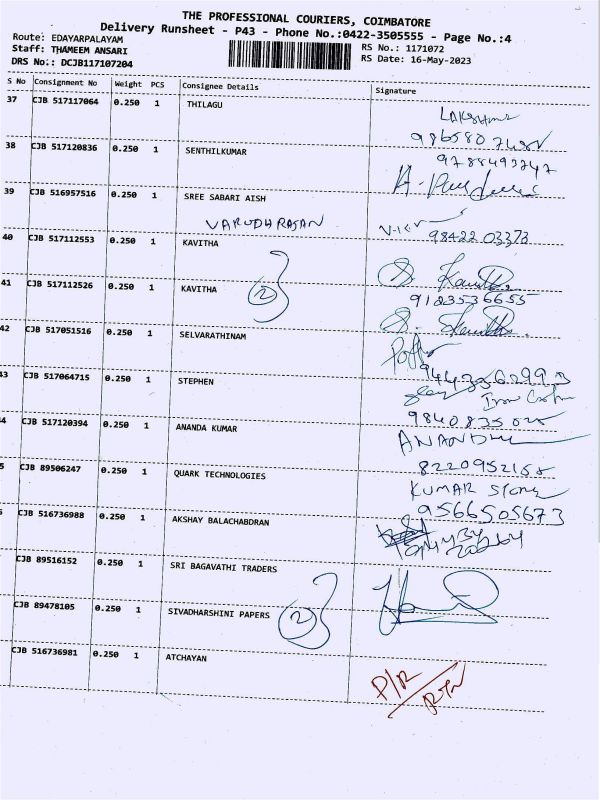 THE PROFESSIONAL COURIERS, COIMBATORE
Delivery Runsheet - P43 - Phone No.:0422-3505555 - Page No.:4
Route: EDAYARPALAYAM
RS No.: 1171072
Staff: THAMEEM ANSARI
RS Date: 16-May-2023
DRS No.: DCJB117107204
S No Consignment No Weight PCS Consignee Details Signature
37 CJB 517117064 0.250 1 THILAGU
LAKSHMI
38 CJB 517120836 0.250 1 SENTHILKUMAR
9788493747
39 CJB 516957516 0.250 1 SREE SABARI AISH
VARUDHARAJAN
98422 03373
40 CJB 517112553 0.250 1 KAVITHA
S. Kavitha
41 CJB 517112526 0.250 1 KAVITHA
2
9123536655
S. Kavitha
42 CJB 517051516 0.250 1 SELVARATHINAM
43 CJB 517064715 0.250 1 STEPHEN
44 CJB 517120394 0.250 1 ANANDA KUMAR
5 CJB 89506247 0.250 1 QUARK TECHNOLOGIES
KUMAR
9566505673
CJB 516736988 0.250 1 AKSHAY BALACHABDRAN
CJB 89516152 0.250 1 SRI BAGAVATHI TRADERS
CJB 89478105 0.250 1 SIVADHARSHINI PAPERS
2
CJB 516736981 0.250 1 ATCHAYAN
P/R
RTN